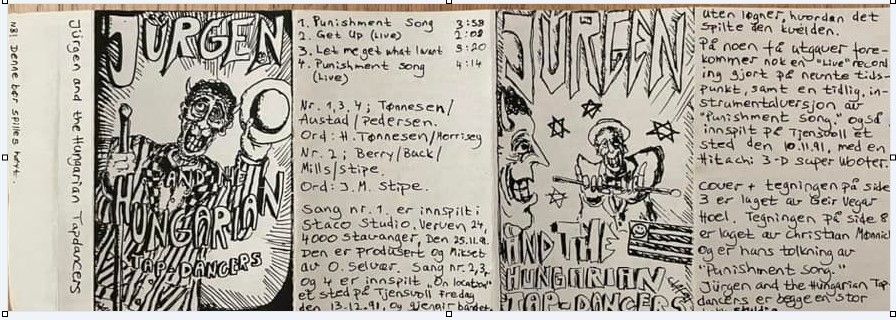 NB! Denne bør spilles høyt.
Jürgen and the Hungarian Tapdancers
JÜRGEN
AND THE
HUNGARIAN
TAP-DANCERS
1. Punishment Song 3:58
2. Get Up (Live) 2:08
3. Let me get what I want 3:20
4. Punishment song 4:14
(Live)
Nr. 1,3,4; Tønnesen/
Austad/Pedersen.
Ord: H.Tønnesen/Morrisey
Nr. 2; Berry/Buck/
Mills/Stipe.
Ord: J.M. Stipe.
Sang nr. 1. er innspilt i
Staco Studio, Verven 24,
4000 Stavanger, Den 25.11.91.
Den er produsert og mikset
av O. Selvær. Sang nr. 2,3,
og 4 er innspilt "On location"
et sted på Tjensvoll fredag
den 13.12.91, og gjengir båndet,
JÜRGEN
AND THE
HUNGARIAN
TAP-DANCERS
uten løgner, hvordan det
spilte den kvelden.
På noen få utgaver fore-
kommer nok en "Live" record
ing gjort på nevnte tids-
punkt, samt en tidlig, in-
strumentalversjon av
"Punishment song," også
innspilt på Tjensvoll et
sted den 10.11.91, med en
Hitachi 3-D super Woofer.
Cover + tegningen på side
3 er laget av Geir Vegar
Hoel. Tegningen på side 8
er laget av Christian
og er hans tolkning av
"Punishment song."
Jürgen and the Hungarian Tap
dancers er begge en stor